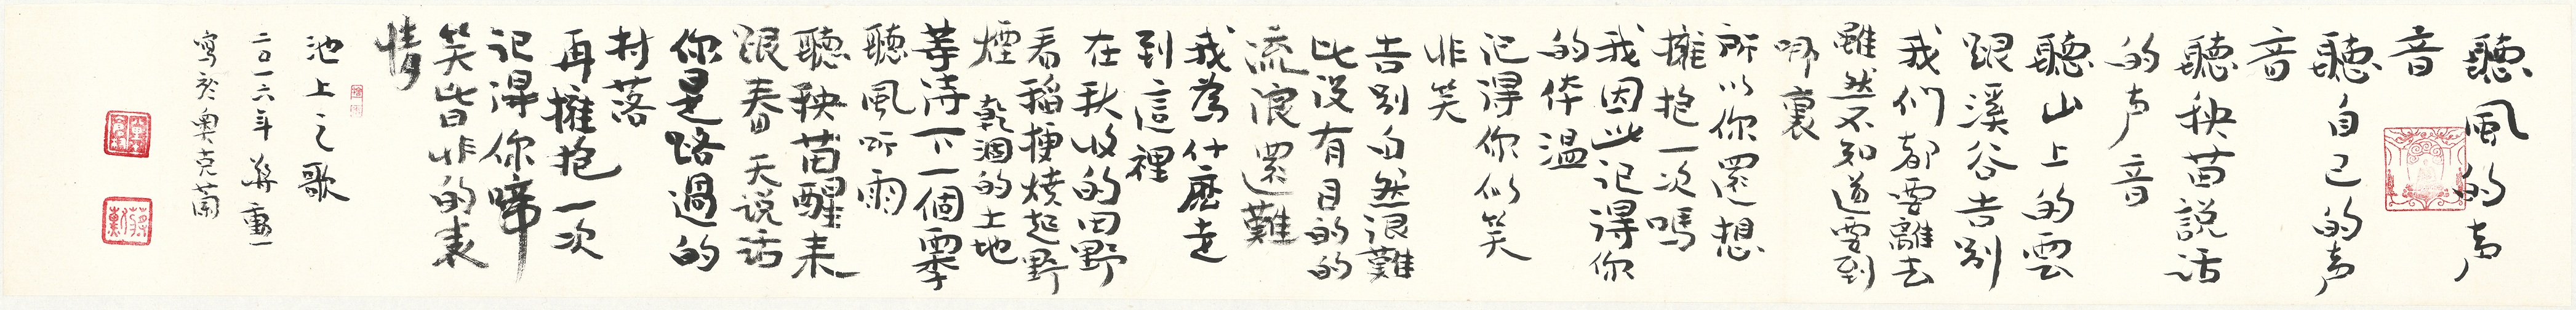 聽風的声
音
聽自己的声
音
聽秧苗說話
的声音
聽山上的雲
跟溪谷告別
我们都要離去
雖然不知道要到
哪裏
所以你還想
擁抱一次嗎
我因此記得你
的体温
記得你似笑
非笑
告別自然很難
比没有目的的
流浪還難
我為什麼走
到這裡
在秋收的田野
看稻梗燒起野
煙 乾涸的土地
等待下一個雨季
聽風听雨
聽秧苗醒来
跟春天説話
你是路過的
村落
再擁抱一次
記得你啼
笑皆非的表
情
池上之歌
二〇一六年 蔣勳
寫於奧克蘭